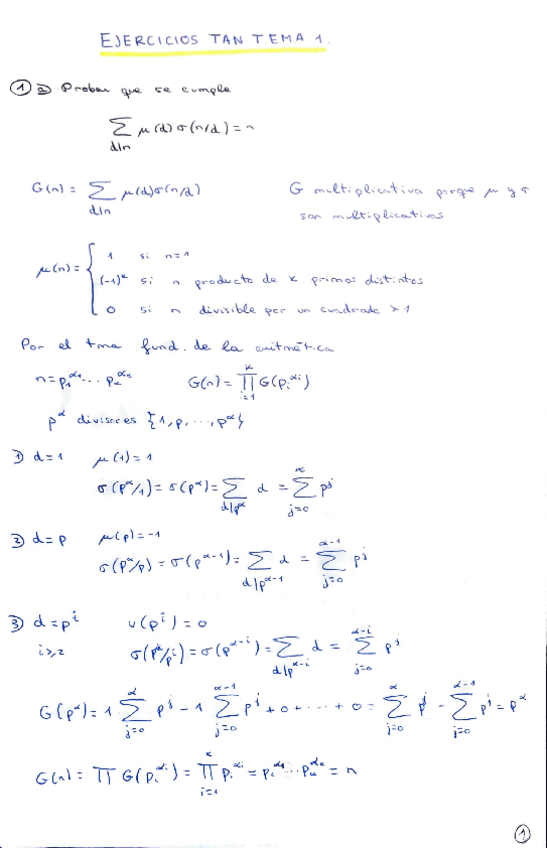 EJERCICIOS TAN TEMA 1.
① a) Probar que se cumple
∑_{d|n} μ(d)σ(n/d) = n
G(n) = ∑_{d|n} μ(d)σ(n/d) G multiplicativa porque μ y σ
son multiplicativas
μ(n) = { 1 si n=1
(-1)^k si n producto de k primos distintos
0 si n divisible por un cuadrado > 1
Por el tma fund. de la aritmética
n = p₁^{α₁} ... p_k^{α_k} G(n) = ∏_{i=1}^{k} G(p_i^{α_i})
p^α divisores {1, p, ..., p^α}
1) d=1 μ(1)=1
σ(p^α/1) = σ(p^α) = ∑_{d|p^α} d = ∑_{j=0}^{α} p^j
2) d=p μ(p)=-1
σ(p^α/p) = σ(p^{α-1}) = ∑_{d|p^{α-1}} d = ∑_{j=0}^{α-1} p^j
3) d=p^i μ(p^i)=0
i≥2 σ(p^α/p^i) = σ(p^{α-i}) = ∑_{d|p^{α-i}} d = ∑_{j=0}^{α-i} p^j
G(p^α) = 1 ∑_{j=0}^{α} p^j - 1 ∑_{j=0}^{α-1} p^j + 0 + ... + 0 = ∑_{j=0}^{α} p^j - ∑_{j=0}^{α-1} p^j = p^α
G(n) = ∏ G(p_i^{α_i}) = ∏_{i=1}^{k} p_i^{α_i} = p₁^{α₁} ... p_k^{α_k} = n
①